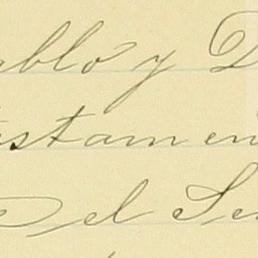 ablo y D
estamen
del Se